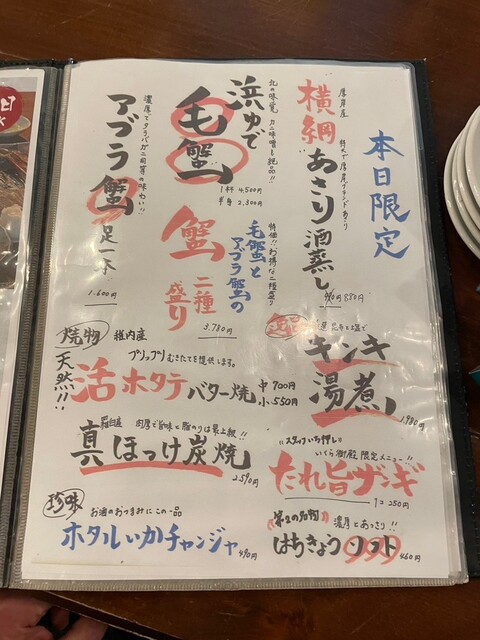 本日限定
厚岸産
横綱あさり酒蒸し
880円
北の味覚 カニ味噌も絶品!!
浜ゆで毛蟹
1杯 4,500円
半身 2,300円
特価!! お得な二種盛り
毛蟹とアブラ蟹の
蟹二種盛り
3,780円
濃厚でタラバガニ同等の味わい!!
アブラ蟹足一本
1,600円
キンキ湯煮
1,980円
焼物
稚内産
天然!!
プリップリむきたてを提供します。
活ホタテバター焼
中 700円
小 550円
羅臼産
肉厚で旨味と脂のりは最上級!!
真ほっけ炭焼
2,590円
"スタッフいち押し"
いくら御殿 限定メニュー!!
たれ旨ザンギ
1コ 250円
珍味
お酒のおつまみにこの一品
ホタルいかチャンジャ
490円
第2の名物
濃厚とあっさり!!
はちきょうソフト
460円